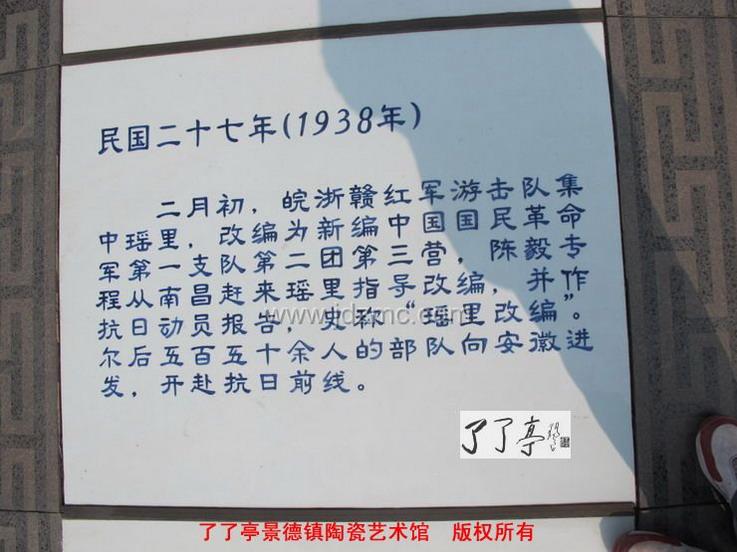 民国二十七年(1938年)
二月初，皖浙赣红军游击队集
中瑶里，改编为新编中国国民革命
军第一支队第二团第三营，陈毅专
程从南昌赶来瑶里指导改编，并作
抗日动员报告，史称“瑶里改编”。
尔后五百五十余人的部队向安徽进
发，开赴抗日前线。
了了亭
了了亭景德镇陶瓷艺术馆 版权所有